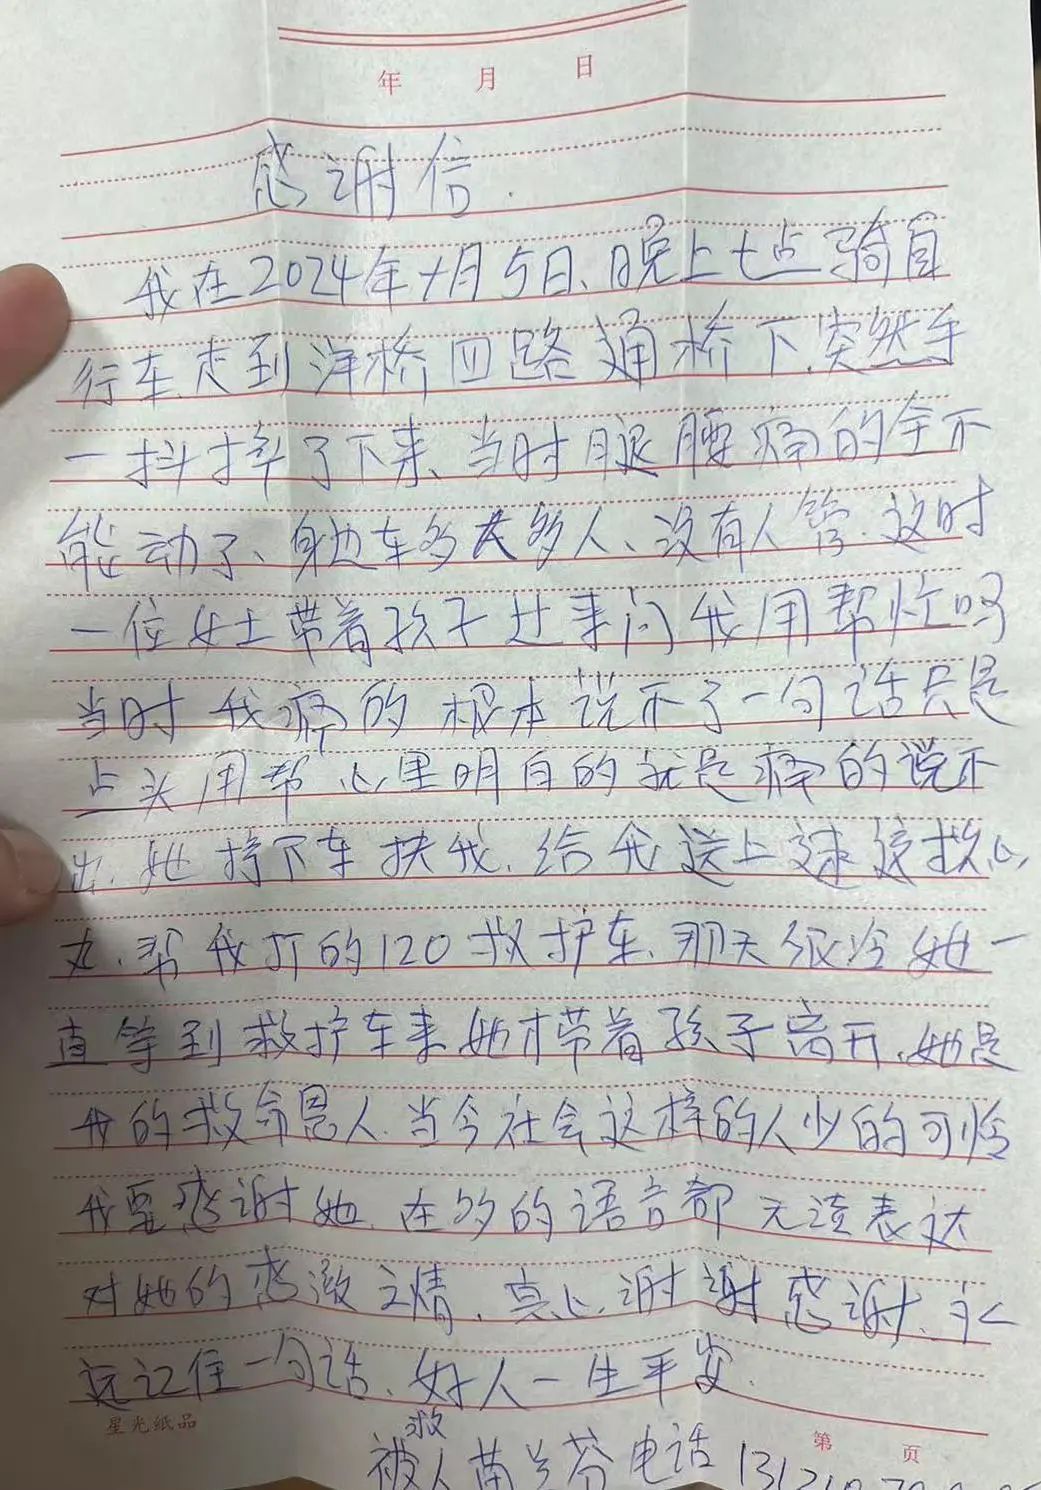 年 月 日
感谢信.
我在2024年十月5日、晚上七点骑自
行车走到洋桥四路通桥下.突然车
一抖摔了下来、当时腿腰痛的全不
能动了、身边车多人多人、没有人管.这时
一位女士带着孩子过来问我用帮忙吗
当时我痛的根本说不了一句话只是
点头用帮心里明白的就是痛的说不
出.她停下车扶我.给我送上速效救心
丸.帮我打的120救护车.那天很冷她一
直等到救护车来她才带着孩子离开.她是
我的救命恩人.当今社会这样的人少的可怜
我要感谢她.在多的语言都无法表达
对她的感激之情.真心谢谢感谢.永
远记住一句话、好人一生平安.
星光纸品
第 页
被救人苗兰芬电话